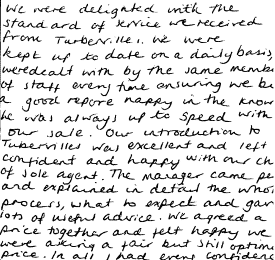 We were delighted with the
standard of service we received
from Turbervilles. We were
kept up to date on a daily basis,
weredealt with by the same membe
of staff every time ensuring we bu
a good repore happy in the know
he was always up to speed with
our sale. Our introduction to
Tubervilles was excellent and left
confident and happy with our ch
of sole agent. The manager came pe
and explained in detail the whol
process, what to expect and gav
lots of useful advice. We agreed a
price together and felt happy we
were asking a fair but still optim
price. In all I had every confidenc